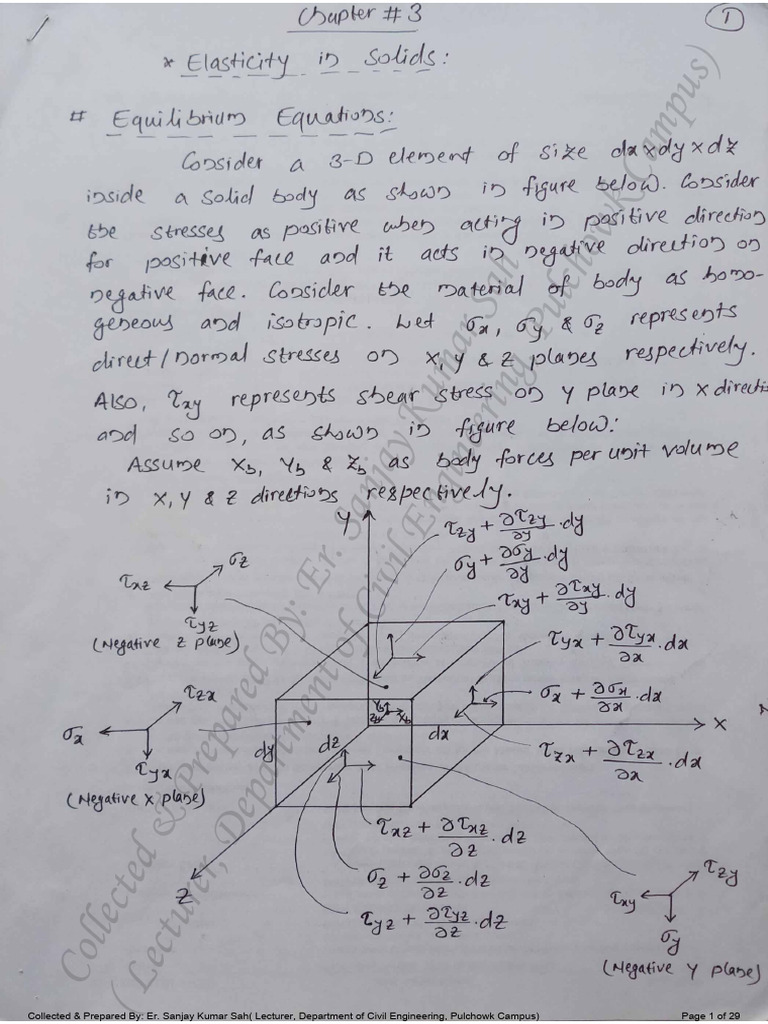 Chapter # 3
1
* Elasticity in Solids:
# Equilibrium Equations:
Consider a 3-D element of size dx×dy×dz
inside a solid body as shown in figure below. Consider
the stresses as positive when acting in positive direction
for positive face and it acts in negative direction on
negative face. Consider the material of body as homo-
geneous and isotropic. Let σx, σy & σz represents
direct/normal stresses on X, Y & Z planes respectively.
Also, τxy represents shear stress on Y plane in X directi
and so on, as shown in figure below:
Assume Xb, Yb & Zb as body forces per unit volume
in X, Y & Z directions respectively.
Y
τzy + ∂τzy/∂y .dy
σy + ∂σy/∂y .dy
τxy + ∂τxy/∂y .dy
τxz
σz
τyz
(Negative Z plane)
τyx + ∂τyx/∂x .dx
σx + ∂σx/∂x .dx
τzx + ∂τzx/∂x .dx
τzx
σx
τyx
(Negative X plane)
Yb
Zb
Xb
dy
dz
dx
X
τxz + ∂τxz/∂z .dz
σz + ∂σz/∂z .dz
τyz + ∂τyz/∂z .dz
Z
τzy
τxy
σy
(Negative Y plane)
Collected & Prepared By: Er. Sanjay Kumar Sah
( Lecturer, Department of Civil Engineering, Pulchowk Campus)
Collected & Prepared By: Er. Sanjay Kumar Sah( Lecturer, Department of Civil Engineering, Pulchowk Campus)
Page 1 of 29